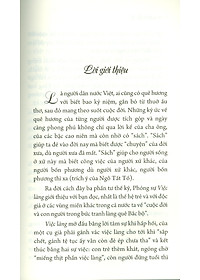 Lời giới thiệu
Là người dân nước Việt, ai cũng có quê hương
với biết bao kỷ niệm, gắn bó từ thuở ấu
thơ, sau đó mang theo suốt cuộc đời. Những ký ức về
quê hương của từng người được tích góp và ngày
càng phong phú không chỉ qua lời kể của cha ông,
của các bậc cao niên mà còn nhờ có "sách". "Sách"
giúp ta dù không sống mà biết được "chuyện" của đời
xưa, dù người xưa đã mất. "Sách" giúp cho người sống
ở xứ này mà biết công việc của người xứ khác, của
người bốn phương dù không phải là người bốn
phương thì xa (trích ý của Ngô Tất Tố).
Ra đời cách đây ba phần tư thế kỷ, Phóng sự Việc
làng giới thiệu với bạn đọc, nhất là thế hệ trẻ và với độc
giả ở các vùng miền khác trong cả nước ta về "cuộc đời
con người trong bức tranh làng quê Bắc bộ".
Việc làng mở đầu bằng tấm áo sự khi hấp hối, của
một cụ già phải gánh xác việc làng cho tới khi "sắp
chết, gánh tế tục ấy vẫn còn đè ép chưa tha" và kết
thúc bằng hai sự việc: con trẻ chưa ra khỏi tã, ngóng
chờ "miếng thịt phần việc làng", còn người đứng tuổi thì